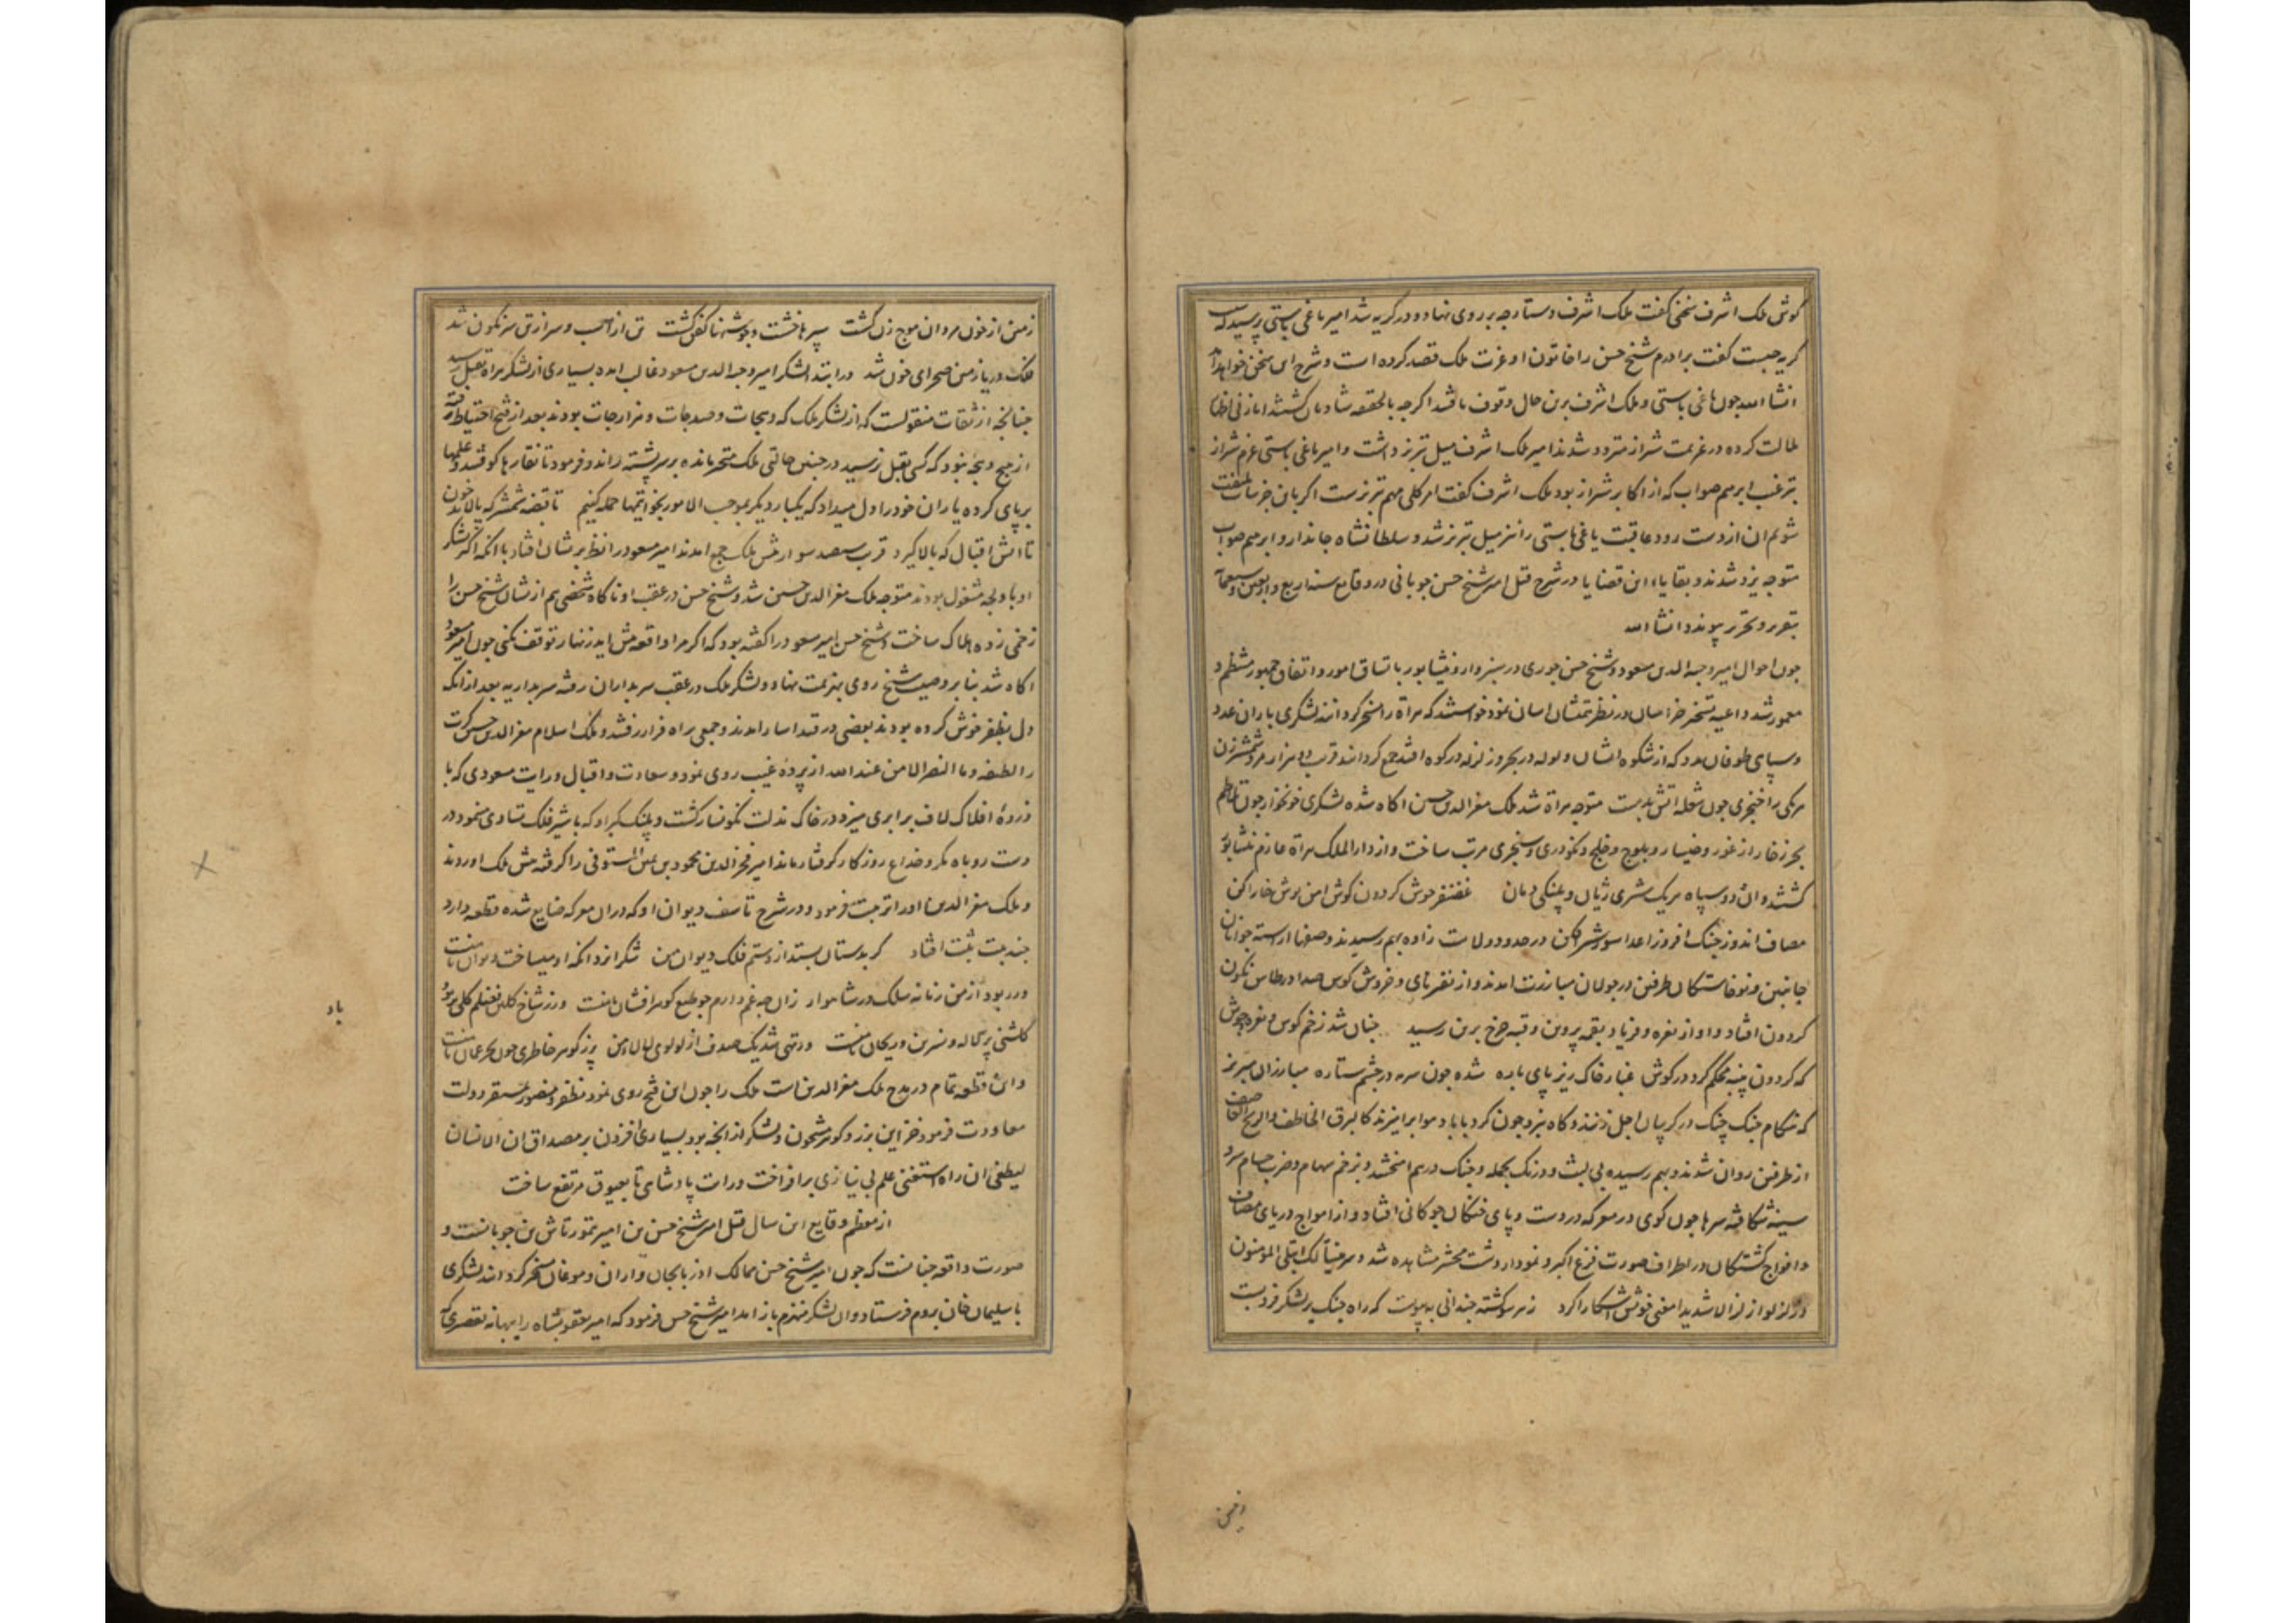 گوش ملک اشرف سخنی گفت ملک اشرف دستارچه بر روی نهاد و در گریه شد امیر یاغی باستی پرسید که سبب
گریه چیست گفت برادرم شیخ حسن را خاتون او عزت ملک قصد کرده است و شرح این سخن خواهد آمد
انشا الله چون یاغی باستی و ملک اشرف برین حال وقوف یافتند اگرچه بالحقیقه شادمان گشتند اما
ملالت کرده در عزیمت شیراز متردد شدند امیر ملک اشرف میل تبریز داشت و امیر یاغی باستی عزم شیراز
بترغیب ابرهیم صواب که از اکابر شیراز بود ملک اشرف گفت امر کلی مهم تبریزست اگر باین جزییات ملتفت
شویم آن از دست رود عاقبت یاغی باستی را نیز میل تبریز شد و سلطانشاه جاندار و ابرهیم صواب
متوجه یزد شدند و بقایاء این قضایا در شرح قتل امیر شیخ حسن چوپانی در وقایع سنه اربع و اربعین و سبعمایه
بتقریر و تحریر پیوندد انشا الله
چون احوال امیر وجیه الدین مسعود و شیخ حسن جوری در سبزوار و نیشابور باتساق امور و اتفاق جمهور منتظم و
معمور شد داعیه تسخیر خراسان در نظر همتشان آسان نمود خواستند که هراة را مسخر گردانند لشکری باران عدد
و سپاهی طوفان مدد که از شکوه ایشان ولوله در بحر و زلزله در کوه افتد جمع گردانیدند قریب ده هزار مرد شمشیرزن
هر یکی را خنجری چون شعله آتش بدست متوجه هراة شد ملک معز الدین حسین آگاه شده لشکری خونخوار چون تلاطم
بحر زخار از غور و خیسار و بلوچ و خلج و نکودری و سنجری مرتب ساخت و از دار الملک هراة عازم نیشابور
گشتند و این دو سپاه هر یک شیری ژیان و پلنگی دمان غضنفر جوش گردون کوش آهن پوش خارا کن
مصاف اندوز جنگ افروز اعدا سوز شیر افکن در حدود ولایت زاوه بهم رسیدند و صفها آراسته جوانان
جانبین و نوخاستگان طرفین در جولان مبارزت آمدند و از نفیر نای و خروش کوس صدا در طاس نگون
گردون افتاد و آواز نعره و فریاد بقمه پروین و قبه چرخ برین رسید چنان شد زخم کوس و نعره جوش
که گردون پنبه محکم کرد در گوش غبار خاک ریز پای باره شده چون سرمه در چشم ستاره مبارزان مبرز
که هنگام جنگ چنگ در گریبان اجل زنند و گاه نبرد چون گرد بابا با هوا برآمیزند کالبرق الخاطف و الریح العاصف
از طرفین روان شدند و بهم رسیده بی لبث و درنگ بجمله و جنگ درهم آمیختند و بزخم سهام و ضرب حسام سر و
سینه شکافته سرها چون گوی در معرکه در دست و پای خنگان چوگانی افتاد و از امواج دریای مصاف
و افواج کشتگان در اطراف صورت فزع اکبر و نمودار دشت محشر مشاهده شد و سر هنالک ابتلی المومنون
و زلزلوا زلزالا شدیدا معنی خویش آشکارا کرد ز هر سو کشته چندانی به پیوست که راه جنگ بر لشکر فرو بست
زمین از خون مردان موج زن گشت سپرها خشت و جوشنها کفن گشت تن از اسب و سر از تن سرنگون شد
فلک دریا زمین صحرای خون شد در ابتدا لشکر امیر وجیه الدین مسعود غالب آمده بسیاری از لشکر هراة بقتل رسید
چنانچه از ثقات منقولست که از لشکر ملک که دیجات و صدجات و هزارجات بودند بعد از فتح احتیاط رفته
از هیچ دیجه نبود که کسی بقتل نرسید در چنین حالتی ملک متحیر مانده بر سر پشته راند و فرمود تا نقارها کوفتند و علمها
بر پای کرده یاران خود را دل میداد که یکبار دیگر بموجب الامور بخواتیمها حمله کنیم تا قبضه شمشیر که پالاید خون
تا آتش اقبال که بالا گیرد قریب سیصد سوار پیش ملک جمع آمدند امیر مسعود را نظر بریشان افتاد با آنکه اکثر لشکر
او باولجه مشغول بودند متوجه ملک معز الدین حسین شد و شیخ حسن در عقب او ناگاه شخصی هم ازیشان شیخ حسن را
زخمی زده هلاک ساخت و شیخ حسن امیر مسعود را گفته بود که اگر مرا واقعه پیش آید زنهار توقف نکنی چون امیر مسعود
آگاه شد بنا بر وصیت شیخ روی بهزیمت نهاد و لشکر ملک در عقب سربداران رفته سربداریه بعد از آنکه
دل بظفر خوش کرده بودند بعضی در قید اسار آمدند و جمعی براه فرار رفتند و ملک اسلام معز الدین حسین کرت
را لطیفه و ما النصر الا من عند الله از پرده غیب روی نمود و سعادت و اقبال و رایت مسعودی که با
ذروهٔ افلاک لاف برابری میزد در خاک مذلت نگونسار گشت و پلنگ کبر او که با شیر فلک تساوی مینمود در
دست روباه مکر و خداع روزگار گرفتار ماند امیر فخر الدین محمود بن یمین المستوفی را گرفته پیش ملک آوردند
و ملک معز الدین او را تربیت فرمود و در شرح تاسف دیوان او که در آن معرکه ضایع شده قطعه دارد
چند بیت ثبت افتاد گر بدستان بستد از دستم فلک دیوان من شکر ایزد آنکه او میساخت دیوان با منست
ور ربود از من زمانه سلک در شاهوار زان چه غم دارم چو طبع گوهر افشان با منست ور ز شاخ گلبن فضلم گلی بربود
گلشنی پر لاله و نسرین و ریحان با منست ور تهی شد یک صدف از لولوی لالای من پر ز گوهر خاطری چون بحر عمان با منست
و این قطعه تمام در مدح ملک معز الدین است ملک را چون این فتح روی نمود مظفر و منصور بمستقر دولت
معاودت فرمود خزاین بزر و گوهر مشحون و لشکر از آنچه بود بسیاری افزون بر مصداق ان الانسان
لیطغی ان راه استغنی علم بی نیازی برافراخت و رایت پادشاهی تا بعیوق مرتفع ساخت
از معظم وقایع این سال قتل امیر شیخ حسن بن امیر تمورتاش بن چوپانست و
صورت واقعه چنانست که چون امیر شیخ حسن ممالک آذربایجان و اران و موغان مسخر گردانید لشکری
با سلیمان خان بروم فرستاد و آن لشکر منهزم باز آمد امیر شیخ حسن فرمود که امیر یعقوبشاه را ببهانه تقصیری که
یاد